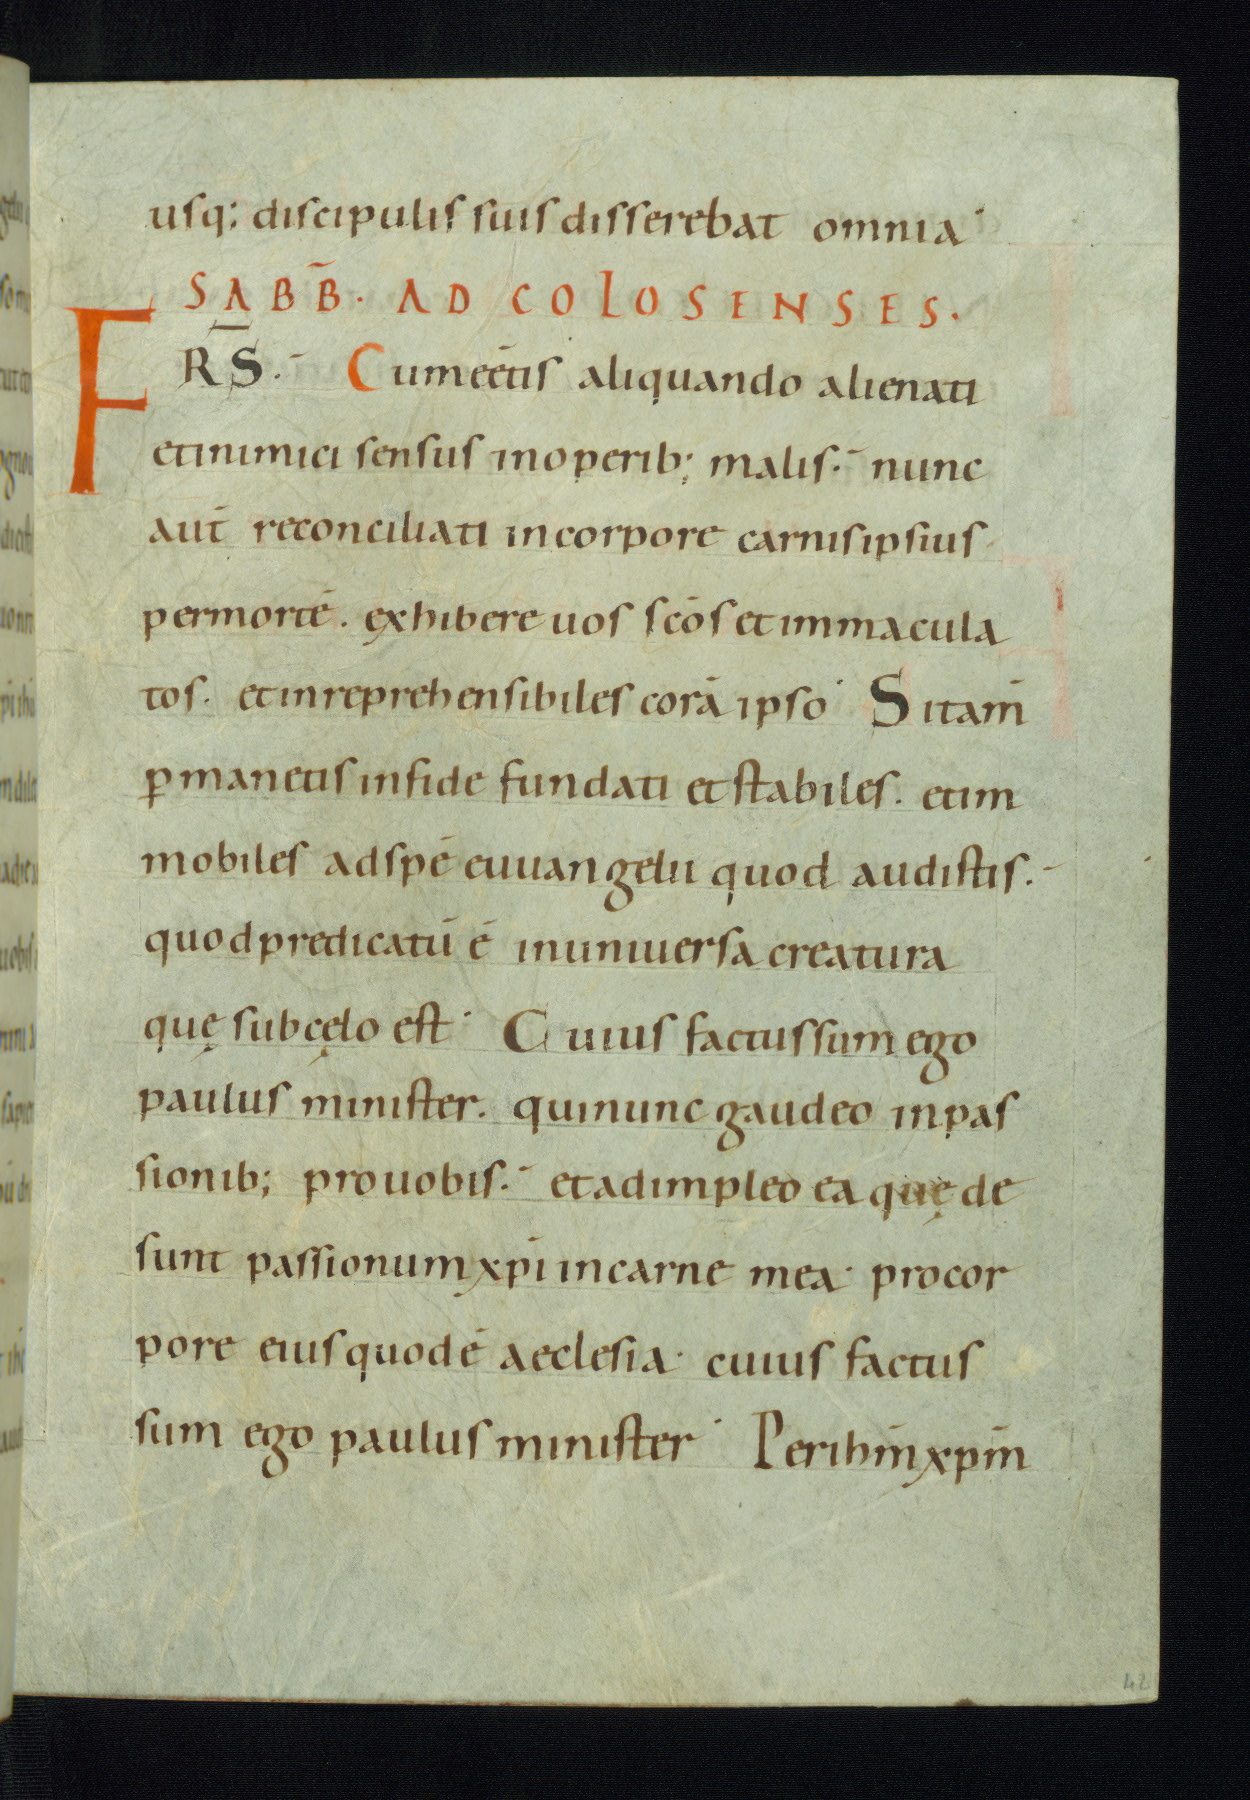 usq; discipulis suis disserebat omnia·
SABB̄. AD COLOSENSES.
FRS̄. Cum eētis aliquando alienati
et inimici sensus in operib; malis. nunc
aut̄ reconciliati in corpore carnis ipsius
per mortē. exhibere uos sc̄os et immacula
tos. et inreprehensibiles corā ipso· Si tam̄
ꝑmanetis in fide fundati et stabiles. et im
mobiles ad spē euuangelii quod audistis.
quod predicatū ē in uniuersa creatura
quę sub cęlo est· Cuius factus sum ego
paulus minister. qui nunc gaudeo in pas
sionib; pro uobis. et adimpleo ea quę de
sunt passionum xp̄i in carne mea· pro cor
pore eius quod ē aeclesia· cuius factus
sum ego paulus minister· Per ihm̄ xpm̄
42